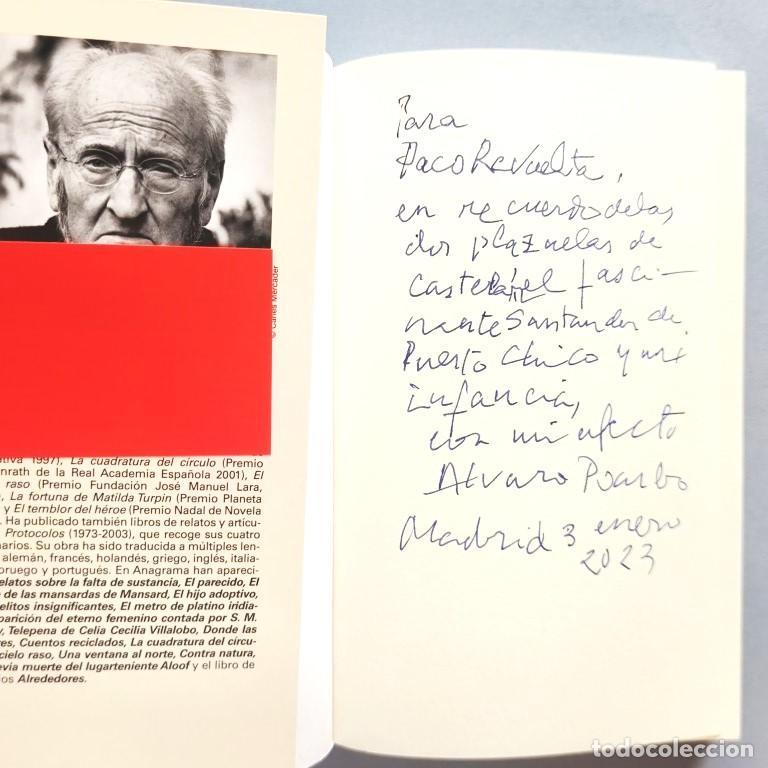 © Carles Mercader
ativa 1997), La cuadratura del círculo (Premio
nrath de la Real Academia Española 2001), El
raso (Premio Fundación José Manuel Lara,
), La fortuna de Matilda Turpin (Premio Planeta
y El temblor del héroe (Premio Nadal de Novela
. Ha publicado también libros de relatos y artícu-
Protocolos (1973-2003), que recoge sus cuatro
narios. Su obra ha sido traducida a múltiples len-
alemán, francés, holandés, griego, inglés, italia-
oruego y portugués. En Anagrama han apareci-
elatos sobre la falta de sustancia, El parecido, El
e de las mansardas de Mansard, El hijo adoptivo,
elitos insignificantes, El metro de platino iridia-
parición del eterno femenino contada por S. M.
y, Telepena de Celia Cecilia Villalobo, Donde las
res, Cuentos reciclados, La cuadratura del círcu-
cielo raso, Una ventana al norte, Contra natura,
evia muerte del lugarteniente Aloof y el libro de
os Alrededores.
Para
Paco Revuelta,
en recuerdo de las
dos plazuelas de
el fasci-
nante Santander de
Puerto Chico y mi
infancia,
con mi afecto
Alvaro Pombo
Madrid 3 enero
2023
todocoleccion